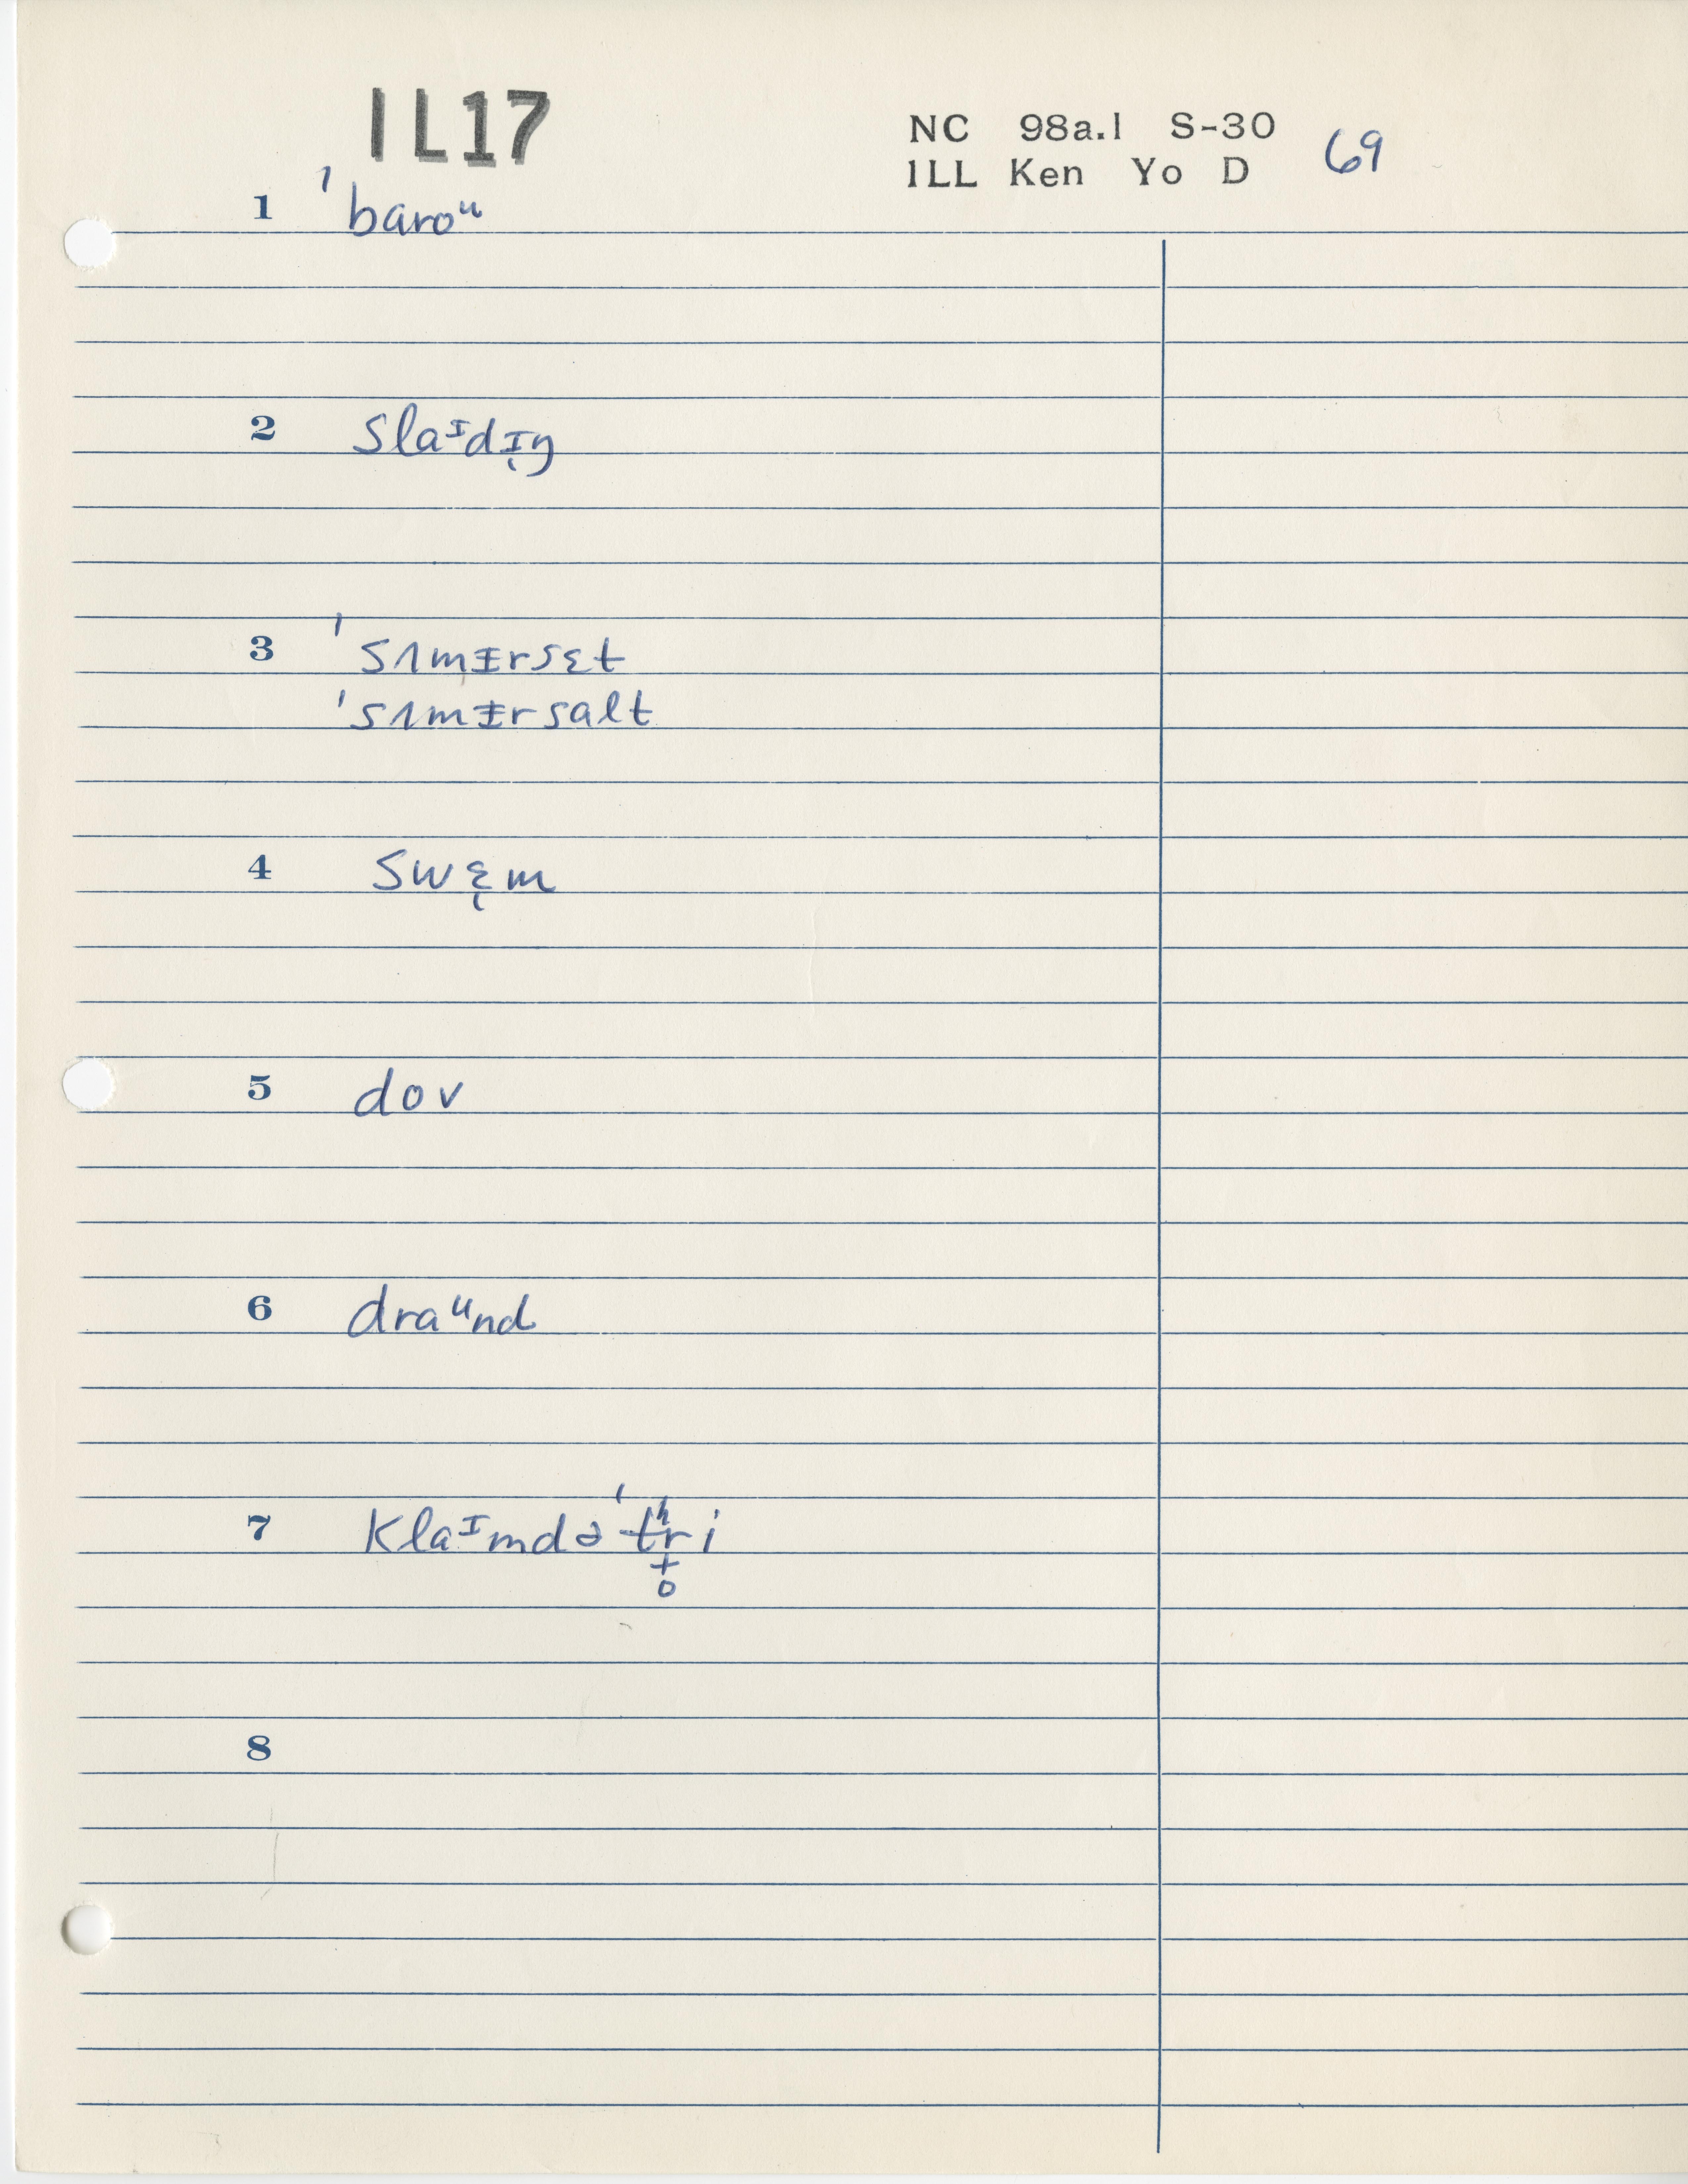 IL17
NC 98a.1 S-30 69
ILL Ken Yo D
1 ˈbaroᵘ
2 slaᶦdɪ̨ŋ
3 ˈsʌmɪ̵rsɛt
ˈsʌmɪ̵rsalt
4 swɛ̨m
5 dov
6 draᵘnd
7 klaᶦmdəˈtʰr̟̊i
8